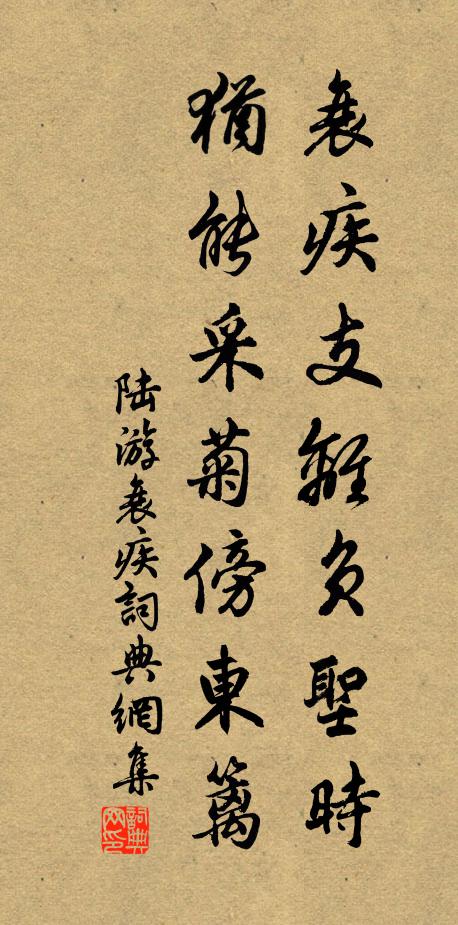 衰疾支離負聖時
猶能采菊傍東籬
陸游衰疾詞典網集
詞典网印